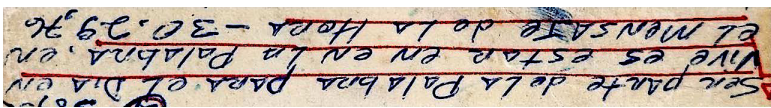 Ser parte de La Palabra para el Dia en
Vive es estar en La Palabra, en,
el Mensaje de La Hora - 30.29,76